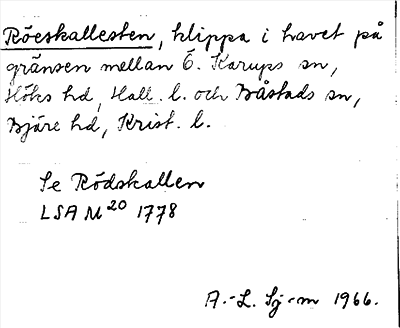 Röeskallesten, klippa i havet på
gränsen mellan Ö. Karups sn,
Höks hd, Hall. l. och Båstads sn,
Bjäre hd, Krist. l.
Se Rödskallen
LSA M 20 1778
A.-L. Sj-m 1966.